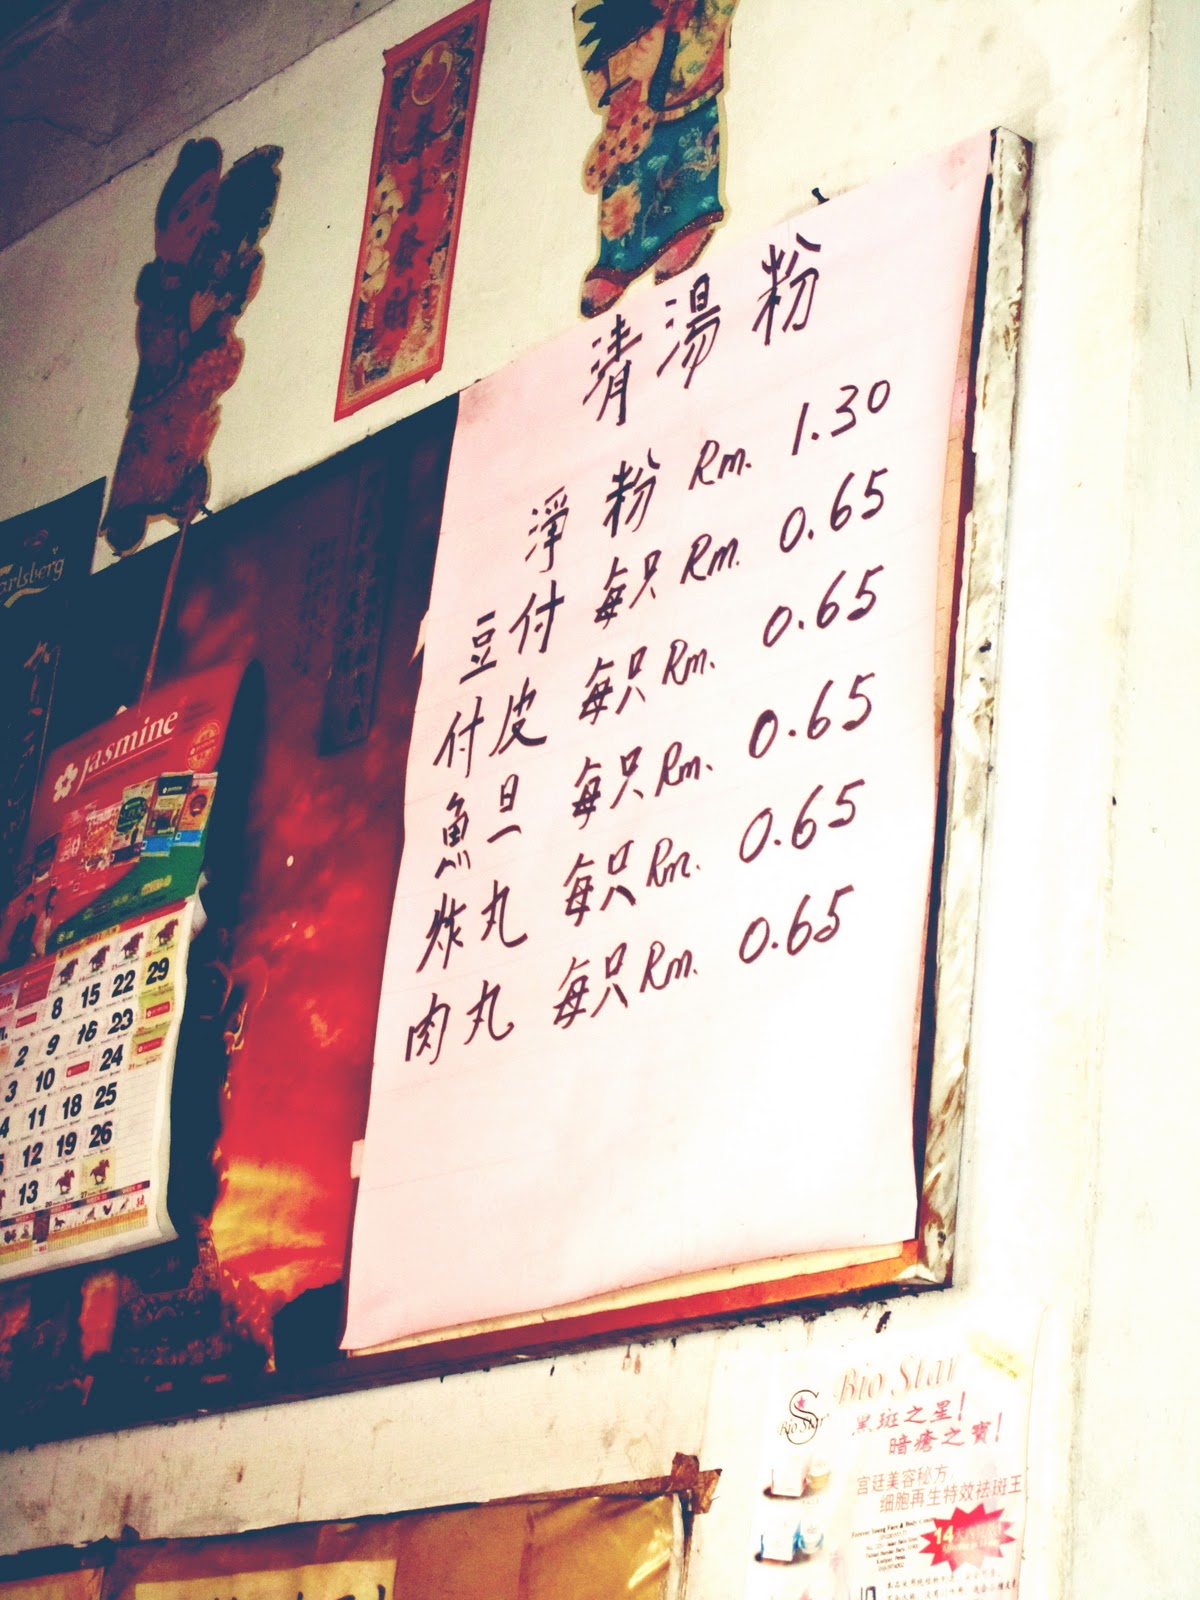 清湯粉
淨粉 Rm. 1.30
豆付 每只 Rm. 0.65
付皮 每只 Rm. 0.65
魚旦 每只 Rm. 0.65
炸丸 每只 Rm. 0.65
肉丸 每只 Rm. 0.65
arlsberg
Jasmine
8 15 22 29
2 9 16 23
3 10 24
4 11 18 25
5 12 19 26
13
Bio Star
Bio Star
黑斑之星!
暗瘡之寶!
宫廷美容秘方,
细胞再生特效祛斑王
14天